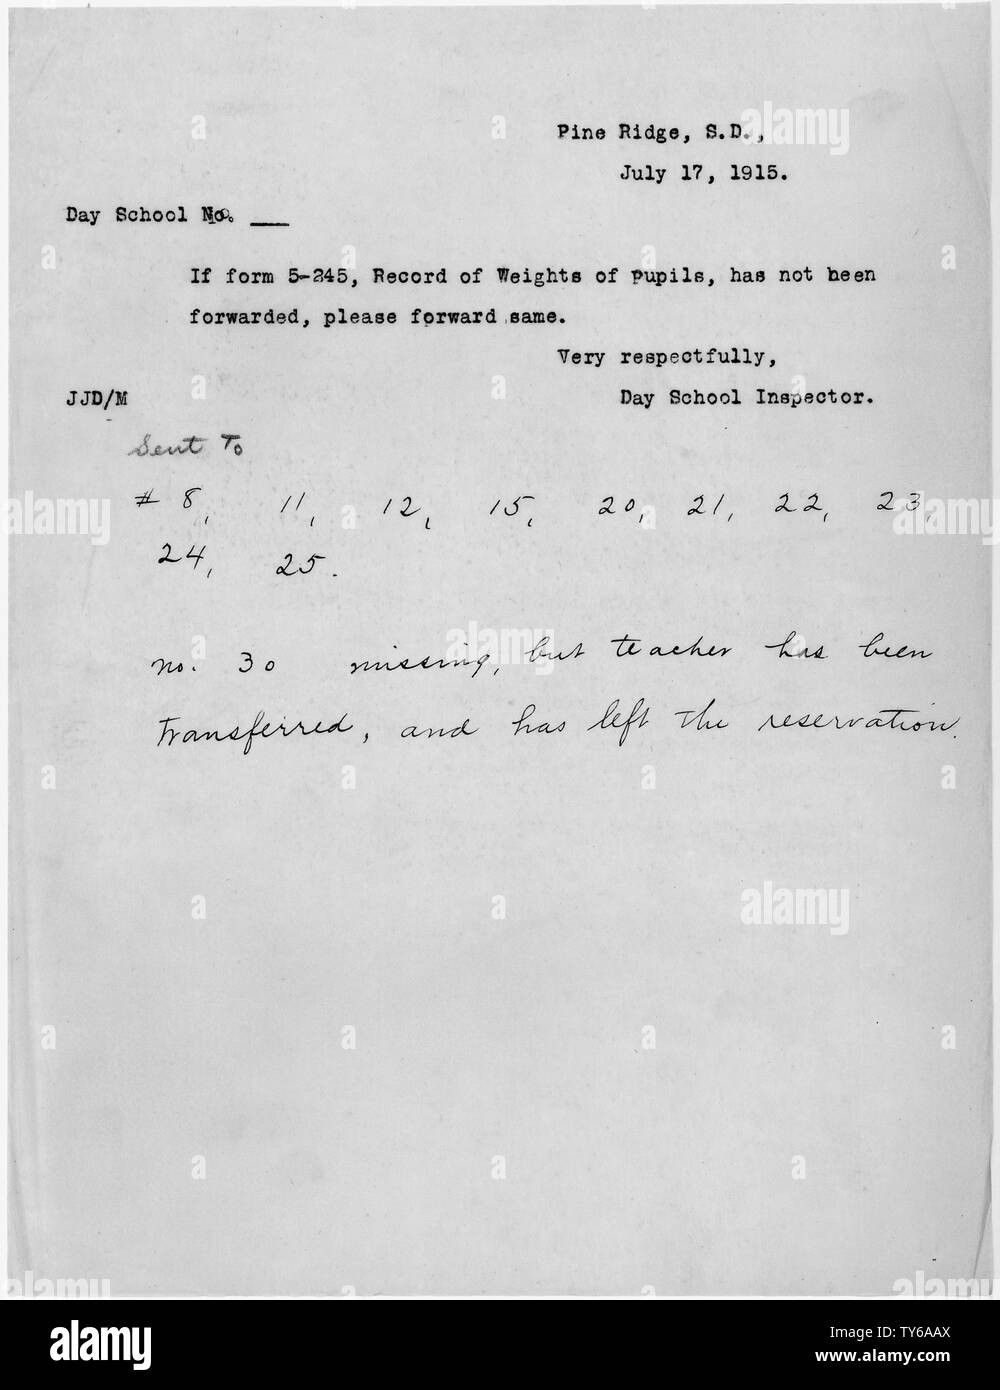 Pine Ridge, S.D.,
July 17, 1915.
Day School No. ___
If form 5-245, Record of Weights of pupils, has not been
forwarded, please forward same.
Very respectfully,
JJD/M Day School Inspector.
Sent To
# 8, 11, 12, 15, 20, 21, 22, 23,
24, 25.
no. 30 missing, but teacher has been
transferred, and has left the reservation.
alamy
Image ID: TY6AAX
www.alamy.com